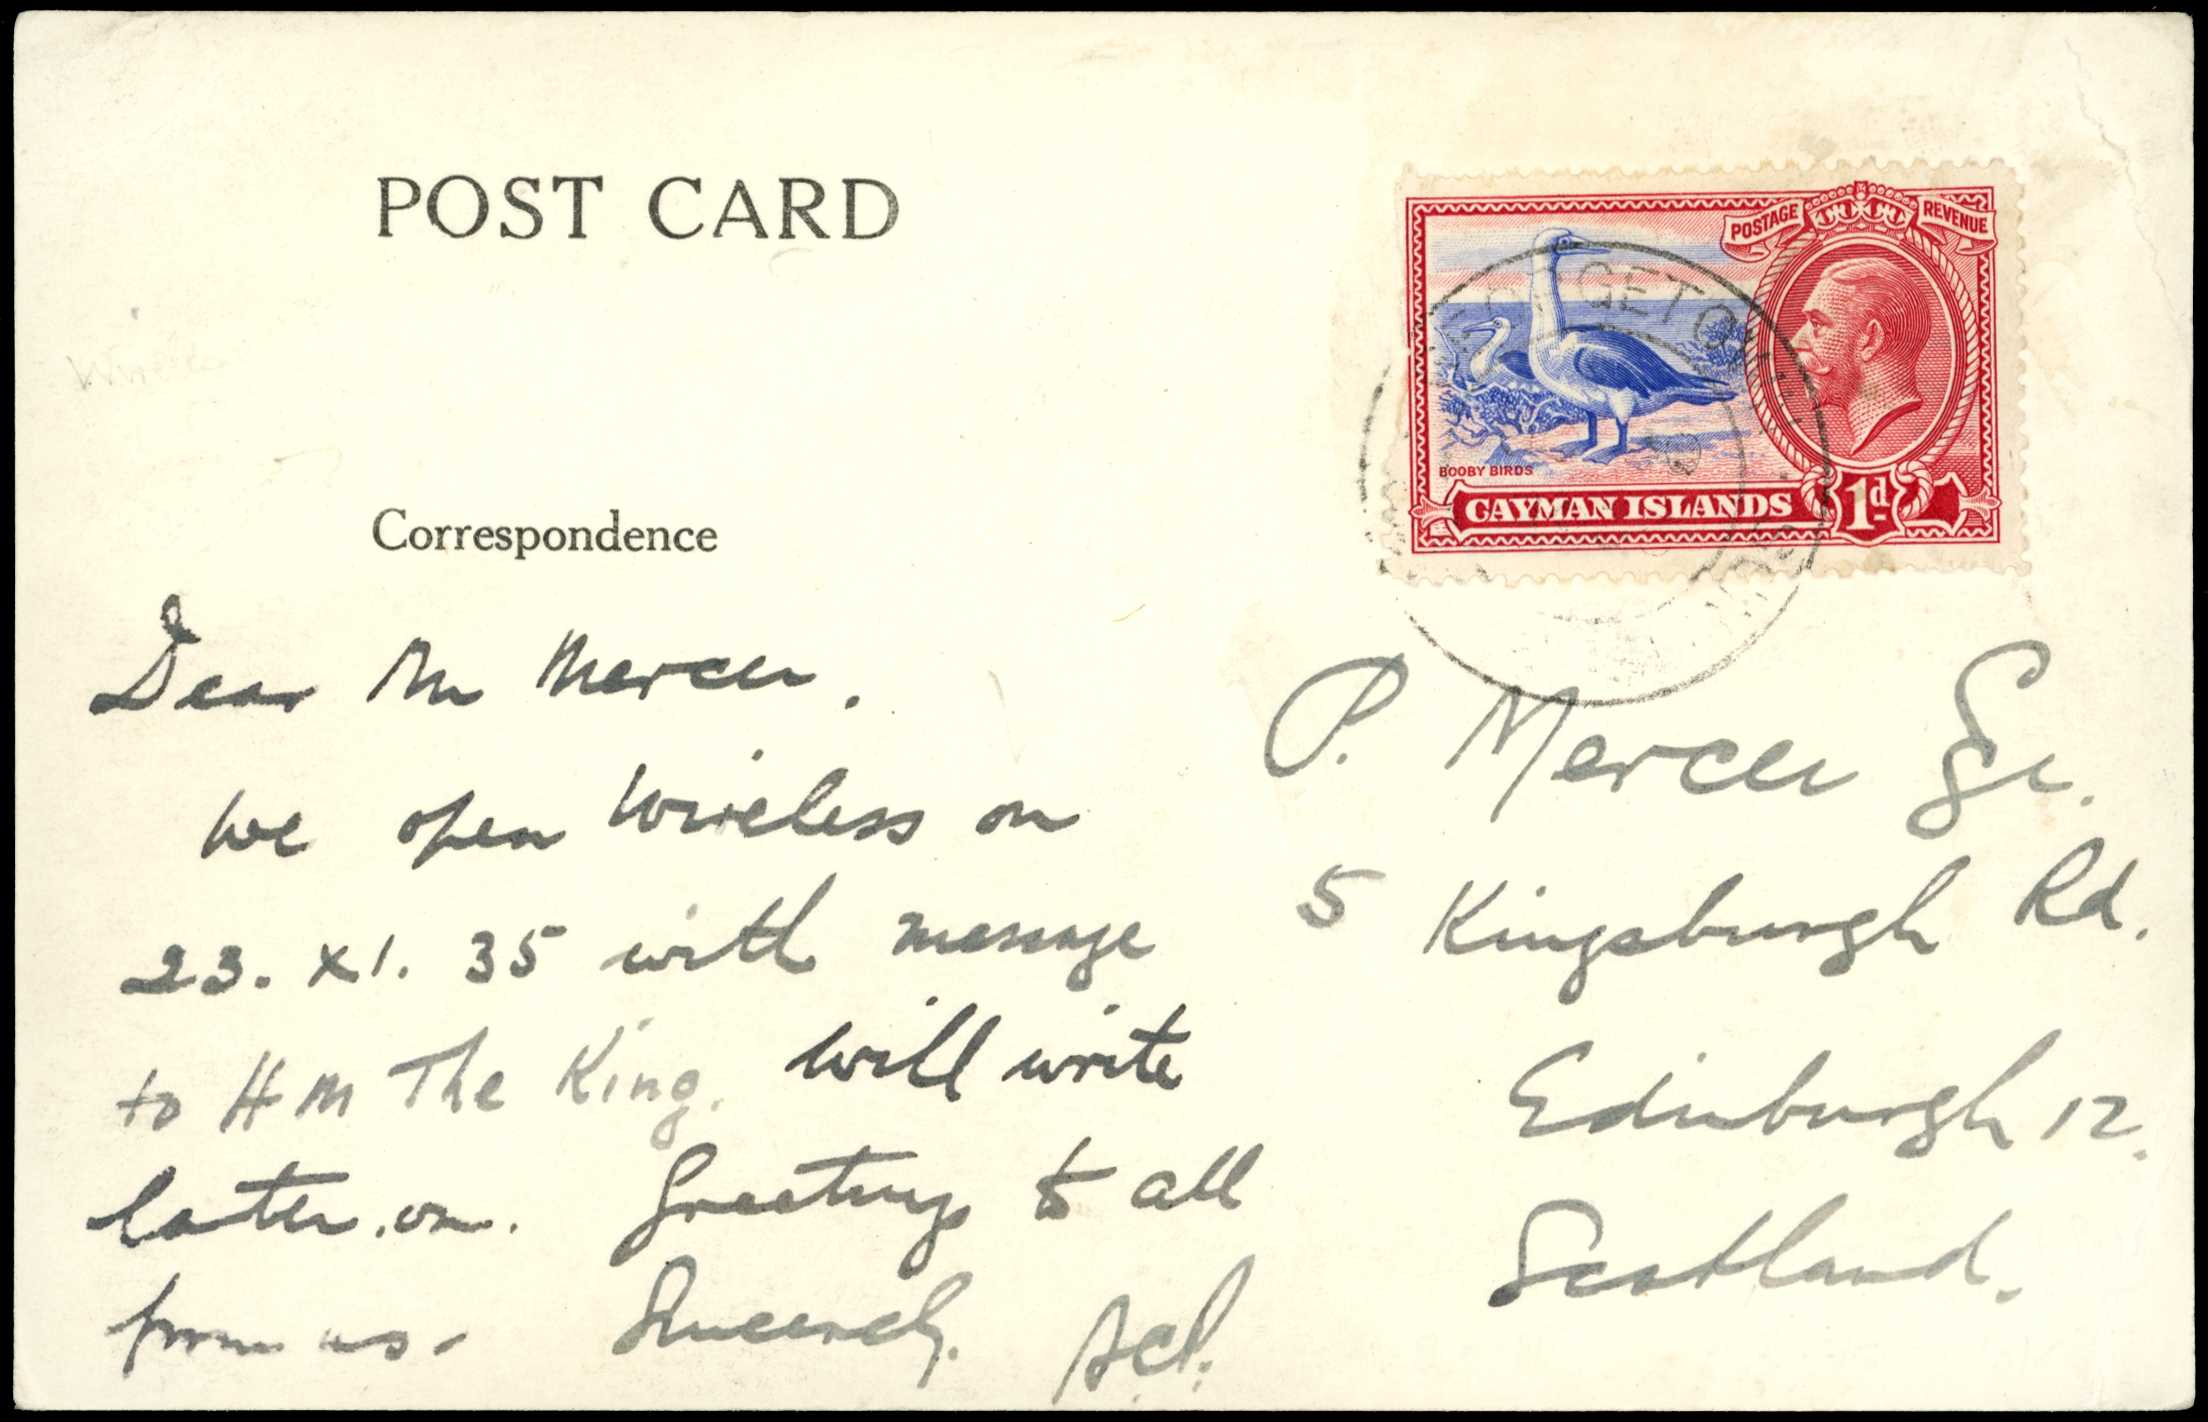 POST CARD
POSTAGE REVENUE
GEORGETOWN
BOOBY BIRDS
CAYMAN ISLANDS 1d
Correspondence
Dear Mr Mercer.
We open wireless on
23. XI. 35 with message
to H M The King. Will write
later on. Greetings to all
from us. Sincerely.
P. Mercer
5 Kingsburgh Rd.
Edinburgh 12.
Scotland.